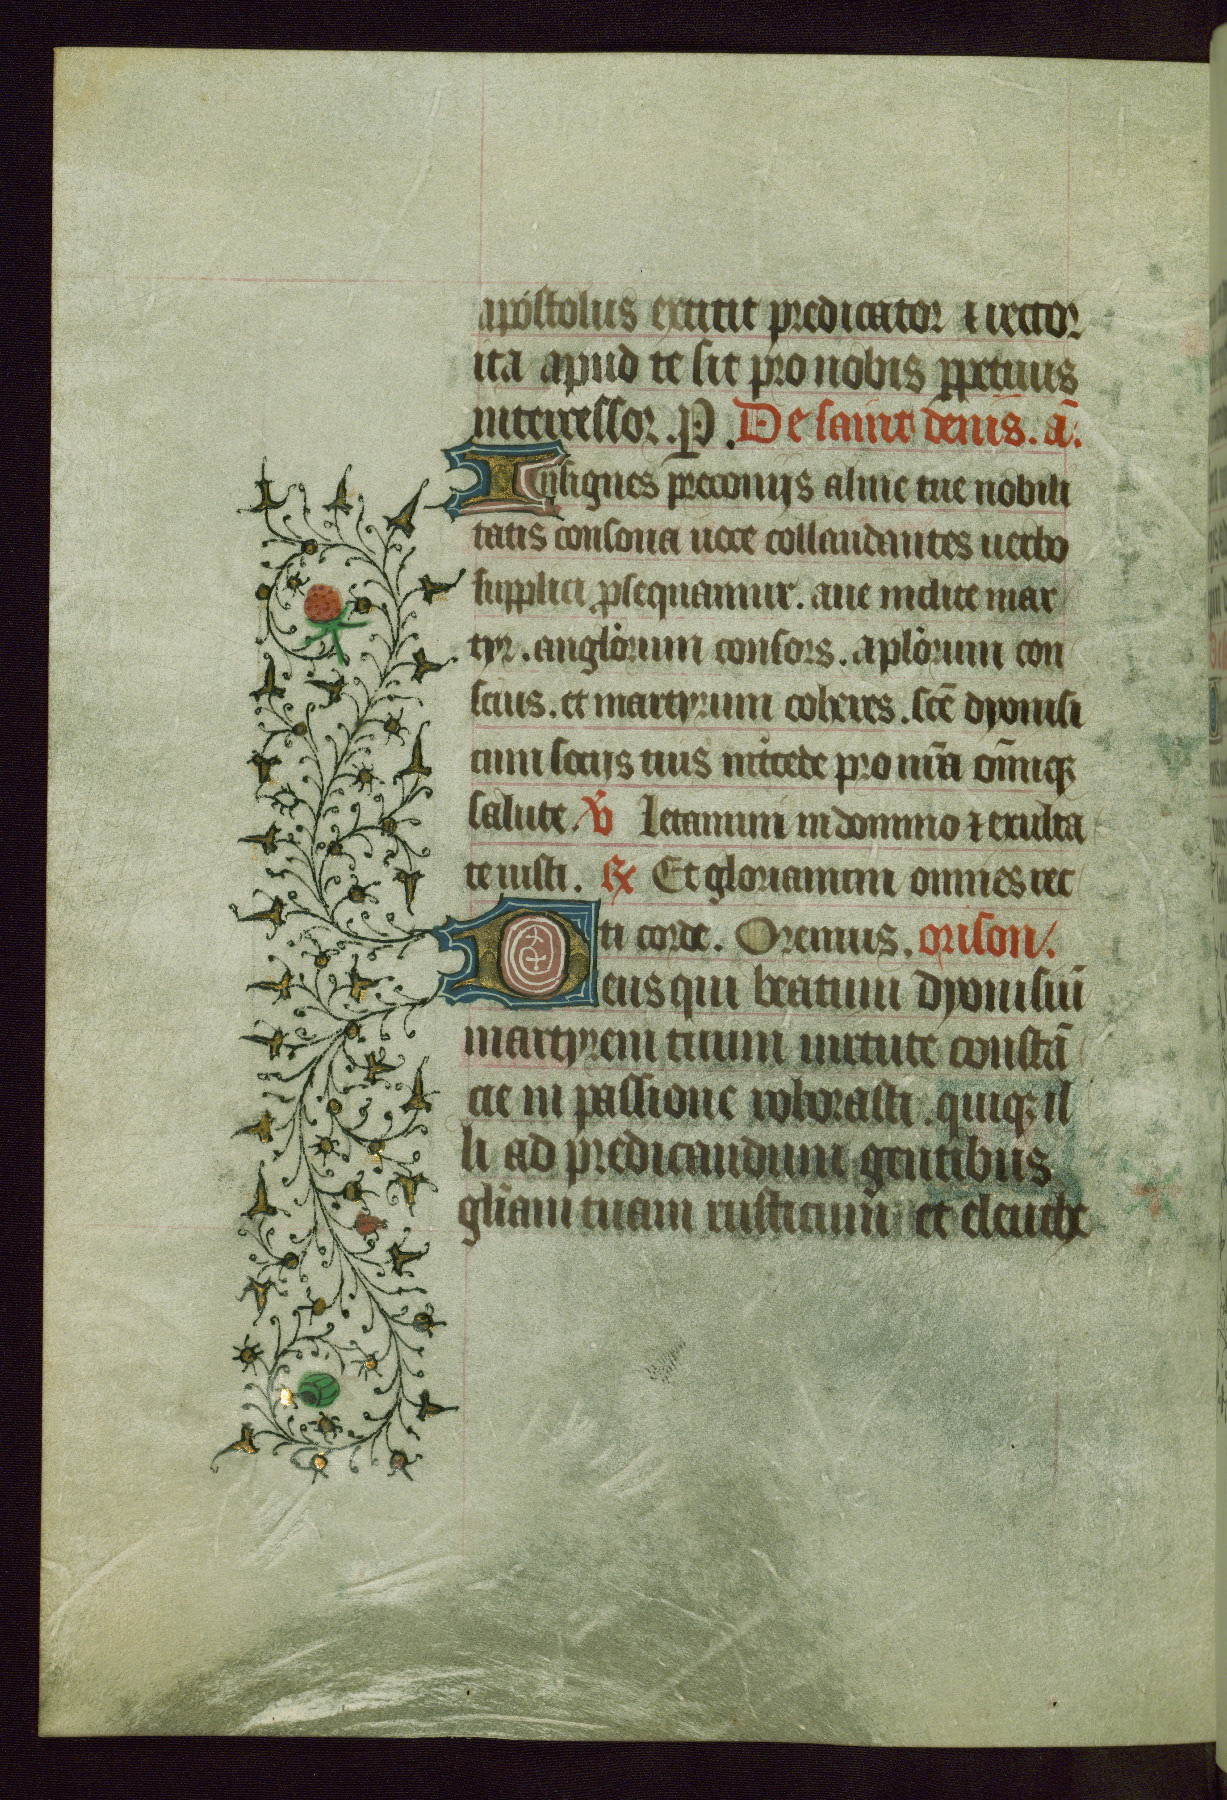 apostolus extitit predicator ⁊ rector
ita apud te sit pro nobis ꝑpetuus
intercessor. P. De saint denis. añ.
Insignes preconijs alme tue nobili
tatis consona uoce collaudantes uerbo
supplici ꝓsequamur. aue inclite mar
tyr. anglorum consors. aplorum con
scius. et martyrum coheres. scē dyonisi
cum socijs tuis intcede pro nrā omniqꝫ
salute. ℣ Letamini in domino ⁊ exulta
te iusti. ℟ Et gloriamini omnes rec
ti corde. Oremus. orison.
Deus qui beatum dyonisiū
martyrem tuum uirtute constā
cie in passione roborasti. quiqꝫ il
li ad predicandum gentibus
gliam tuam rusticum et eleuthe